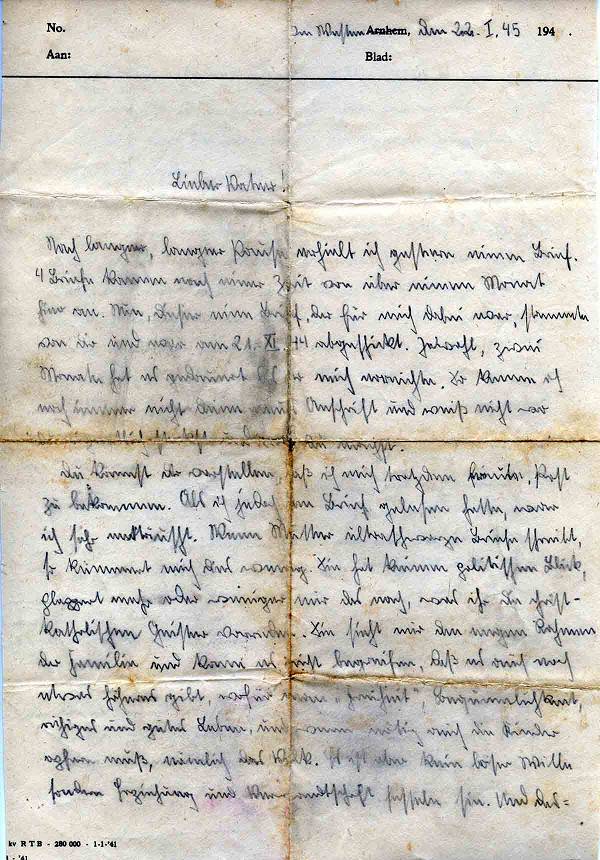 No.
Im Westen Arnhem, den 22. I. 45 194 .
Aan:
Blad:
Lieber Vater!
Nach langer, langer Pause erhielt ich gestern einen Brief.
4 Briefe kamen nach einer Zeit von über einem Monat
hier an. Nun, dieser eine Brief, der für mich dabei war, stammte
von dir und war am 21. XI. 44 abgeschickt. Zwei
Monate hat es gedauert bis er mich erreichte. So kenne ich
noch immer nicht deine neue Anschrift und weiß nicht wo
du machst.
Du kannst dir vorstellen, daß ich mich trotzdem freute, Post
zu bekommen. Als ich jedoch den Brief gelesen hatte, war
ich sehr enttäuscht. Wenn Mutter ultraschwarze Briefe schreibt,
so kümmert mich das wenig. Sie hat keinen politischen Blick,
plappert mehr oder weniger nur das nach, was ihr die christ-
katholischen Geister vorreden. Sie sieht nur den engen Rahmen
der Familie und kann es nicht begreifen, daß es auch noch
etwas höheres gibt, wofür man „Freiheit“, Bequemlichkeit,
ruhiges und gutes Leben, und wenn nötig auch die Kinder
opfern muß, nämlich das Volk. Ist aber kein böser Wille
sondern Erziehung und Verwandtschaft fesseln sie. Und das-
kv R T B - 280 000 - 1-1-'41
1 - '41